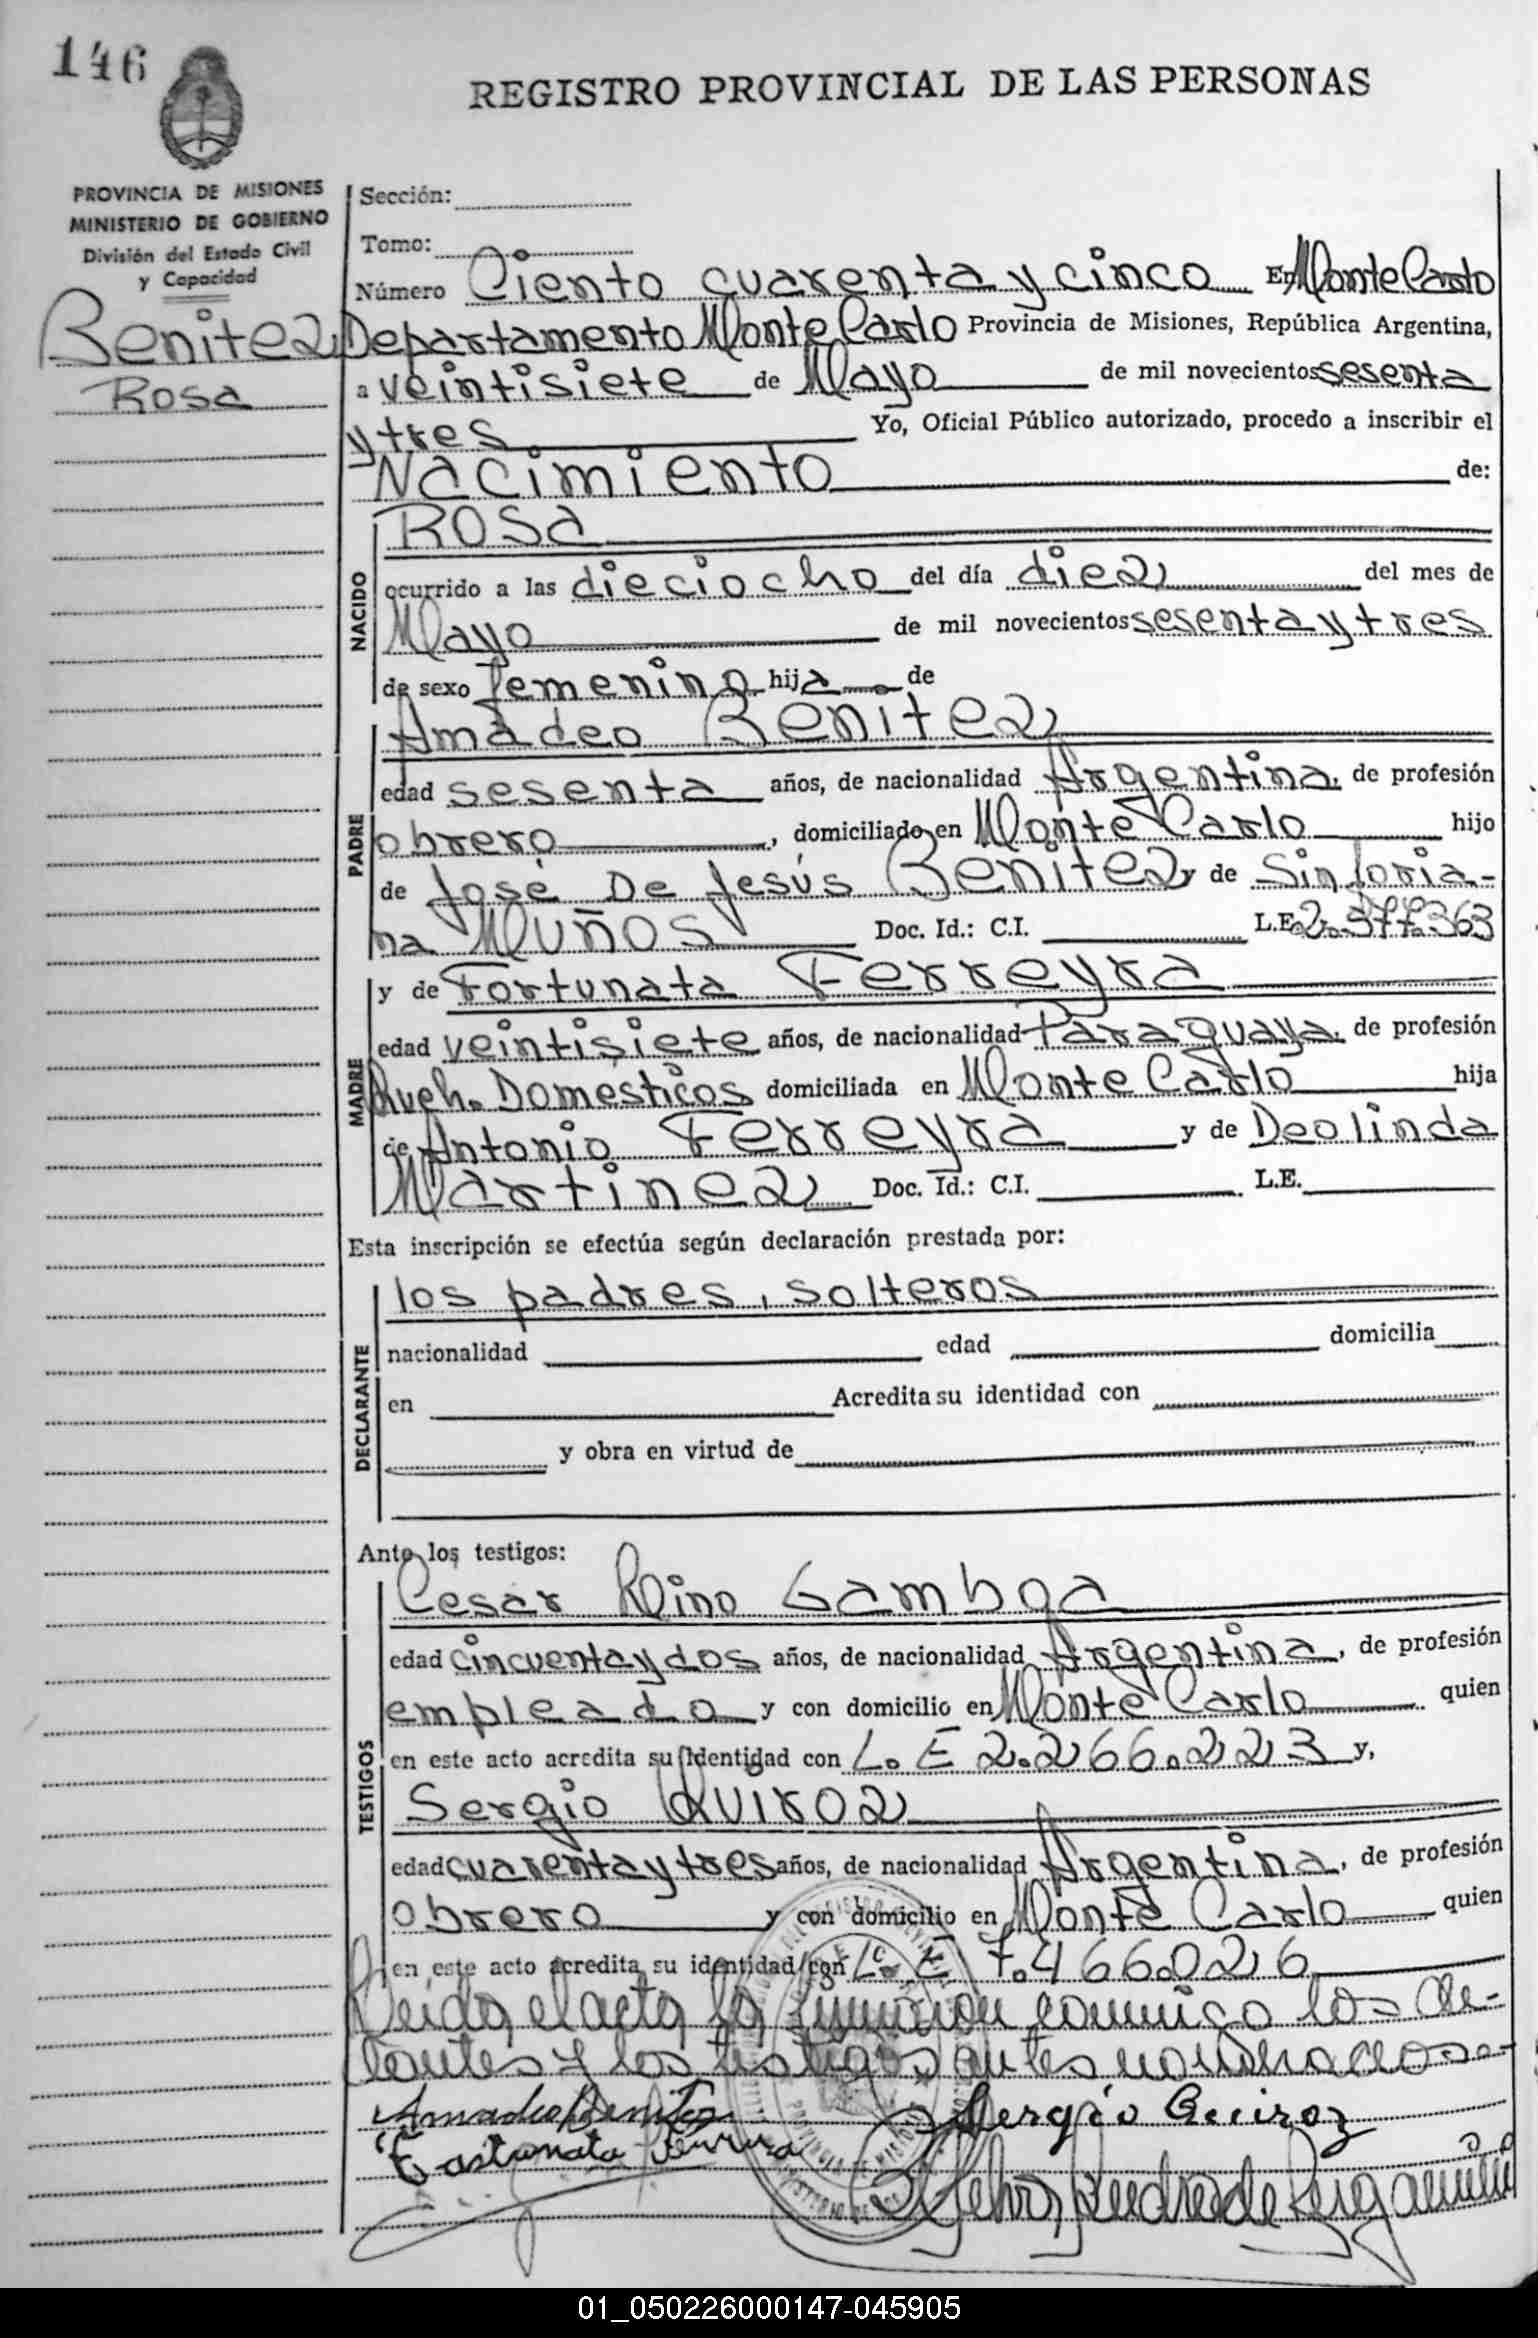 146
REGISTRO PROVINCIAL DE LAS PERSONAS
PROVINCIA DE MISIONES
MINISTERIO DE GOBIERNO
División del Estado Civil
y Capacidad
Benitez
Rosa
Sección:
Tomo:
Número Ciento cuarenta y cinco En Monte Carlo
Departamento Monte Carlo Provincia de Misiones, República Argentina,
a veintisiete de Mayo de mil novecientos sesenta
y tres Yo, Oficial Público autorizado, procedo a inscribir el
Nacimiento de:
NACIDO
Rosa
ocurrido a las dieciocho del día diez del mes de
Mayo de mil novecientos sesenta y tres
de sexo femenino hija de
PADRE
Amadeo Benitez
edad sesenta años, de nacionalidad Argentina, de profesión
obrero, domiciliado en Monte Carlo hijo
de José De Jesús Benitez y de Sinforia-
na Muños Doc. Id.: C.I. L.E. 2.377.363
MADRE
y de Fortunata Ferreyra
edad veintisiete años, de nacionalidad Paraguaya, de profesión
Queh. Domesticos domiciliada en Monte Carlo hija
de Antonio Ferreyra y de Deolinda
Martinez Doc. Id.: C.I. L.E.
Esta inscripción se efectúa según declaración prestada por:
DECLARANTE
los padres, solteros
nacionalidad edad domicilia
en Acredita su identidad con
y obra en virtud de
Ante los testigos:
TESTIGOS
Cesar Dino Gamboa
edad cincuenta y dos años, de nacionalidad Argentina, de profesión
empleado y con domicilio en Monte Carlo quien
en este acto acredita su identidad con L. E 2.266.223 y,
Sergio Quiroz
edad cuarenta y tres años, de nacionalidad Argentina, de profesión
obrero y con domicilio en Monte Carlo quien
en este acto acredita su identidad con L. E 7.466.026
Leida el acta la firmaron conmigo los de-
clarantes y los testigos antes nombrados.-
Amadeo Benitez Sergio Queiroz
Fastunata
01_050226000147-045905